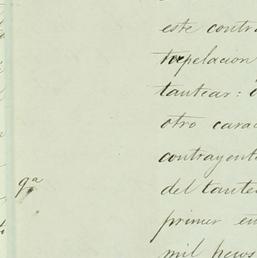 este contra
tropelacion
tantear: 
otro carac
contrayente
9ª
del tantee
primer en
mil